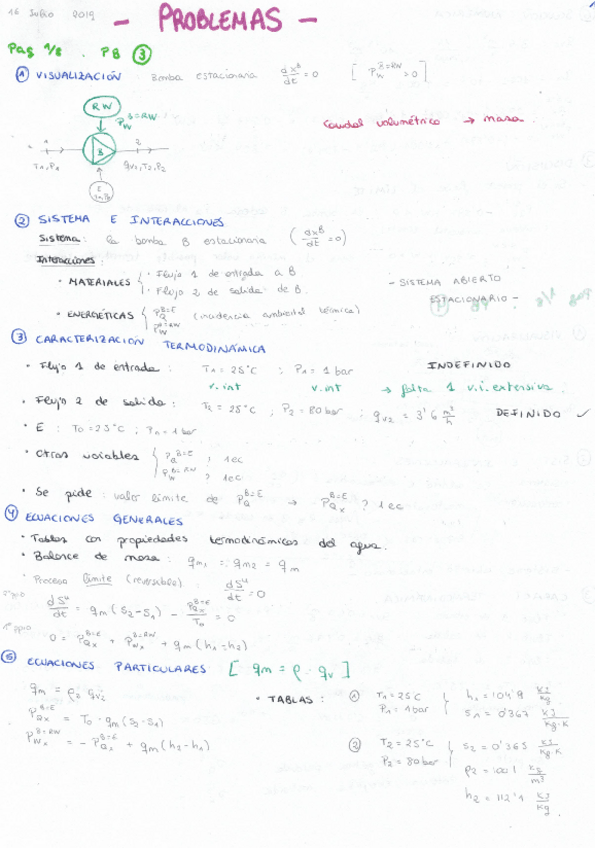 16 Julio 2019
- PROBLEMAS -
1
Pag 1/8 . PB ③
① VISUALIZACIÓN : Bomba estacionaria dx^B/dt = 0 [ P_W^{B=RW} > 0 ]
RW
P_W^{B=RW}
Caudal volumétrico → masa
1
2
B
T1, P1
qv2, T2, P2
E
② SISTEMA E INTERACCIONES
Sistema : la bomba B estacionaria ( dx^B/dt = 0 )
Interacciones :
• MATERIALES { · Flujo 1 de entrada a B.
· Flujo 2 de salida de B.
- SISTEMA ABIERTO
ESTACIONARIO -
• ENERGÉTICAS { P_Q^{B=E} (incidencia ambiental térmica)
P_W^{B=RW}
③ CARACTERIZACIÓN TERMODINÁMICA
• Flujo 1 de entrada : T1 = 25°C ; P1 = 1 bar INDEFINIDO
v. int v. int → falta 1 v.i. extensiva.
• Flujo 2 de salida : T2 = 25°C ; P2 = 80 bar ; qv2 = 3'6 m³/h DEFINIDO ✓
• E : T0 = 25°C ; P0 = 1 bar
• Otras variables { P_Q^{B=E} ? 1 ec
P_W^{B=RW} ? 1 ec
• Se pide : valor límite de P_Q^{B=E} → P_Qx^{B=E} ? 1 ec
④ ECUACIONES GENERALES
• Tablas con propiedades termodinámicas del agua.
• Balance de masa : qm1 = qm2 = qm
• Proceso límite (reversible) : dS^u/dt = 0
2º ppio dS^u/dt = qm (s2 - s1) - P_Qx^{B=E}/T0 = 0
1º ppio 0 = P_Qx^{B=E} + P_Wx^{B=RW} + qm (h1 - h2)
⑤ ECUACIONES PARTICULARES [ qm = ρ · qv ]
qm = ρ2 · qv2
P_Qx^{B=E} = T0 · qm (s2 - s1)
P_Wx^{B=RW} = - P_Qx^{B=E} + qm (h2 - h1)
• TABLAS : ① T1 = 25°C P1 = 1 bar } h1 = 104'9 kJ/kg
s1 = 0'367 kJ/kg·K
② T2 = 25°C P2 = 80 bar } s2 = 0'365 kJ/kg·K
ρ2 = 1001 kg/m³
h2 = 112'1 kJ/kg